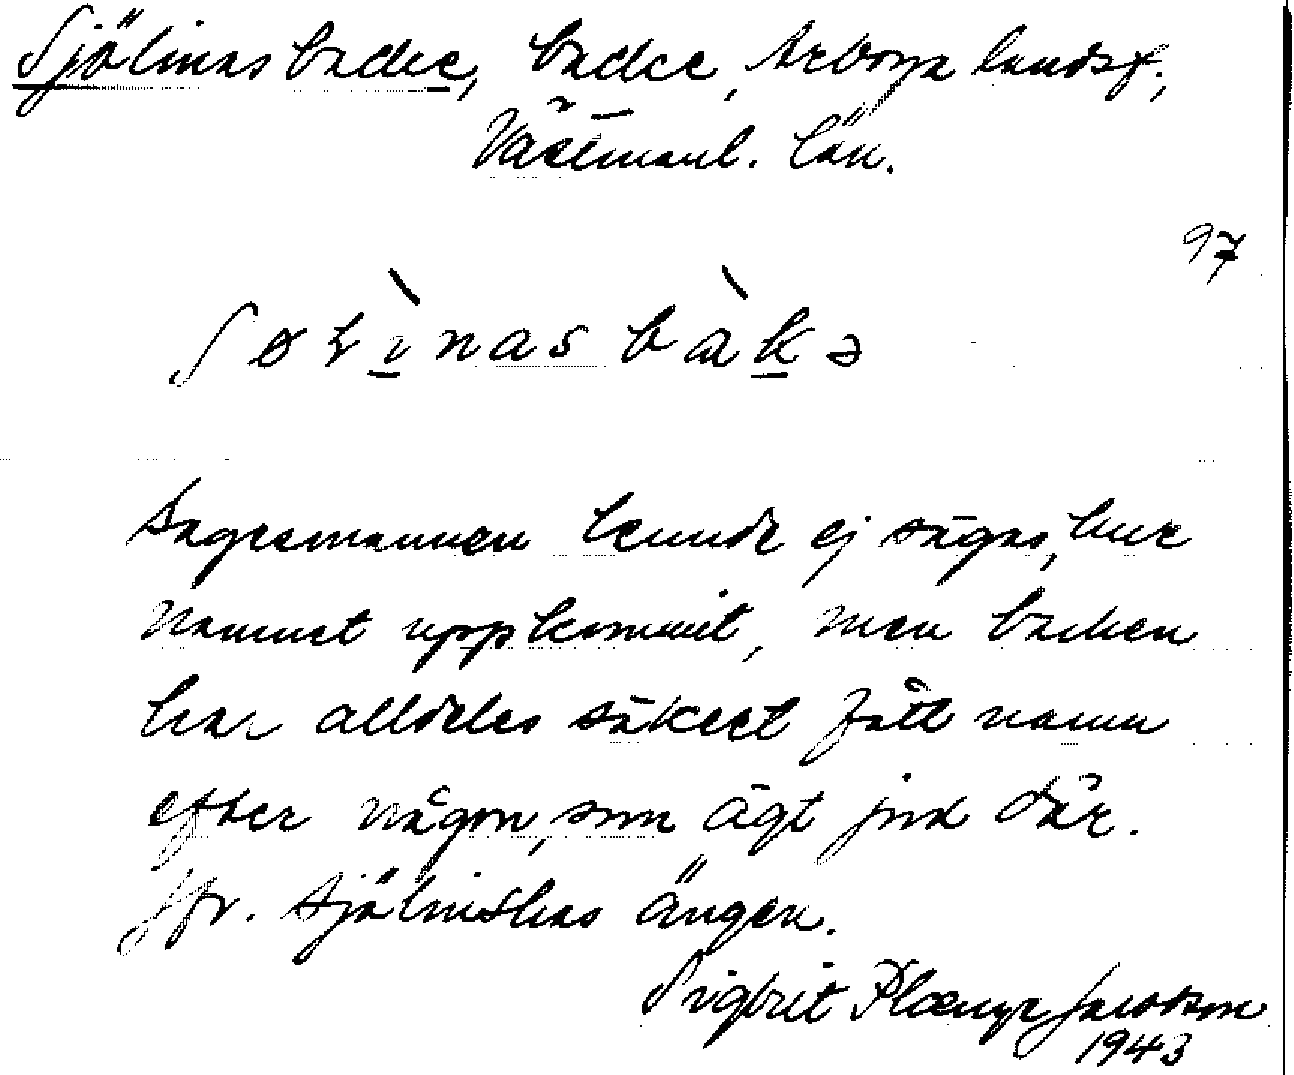 Sjölinas backe, backe, Arboga landsf.,
Västmanl. län.
97
ʃølìnas bàkə
Sagesmannen kunde ej sägas, hur
namnet uppkommit, men backen
har alldeles säkert fått namn
efter någon, som ägt jord där.
Jfr. Sjölinskas ängen.
Sigbrit Plænge Jacobson
1943